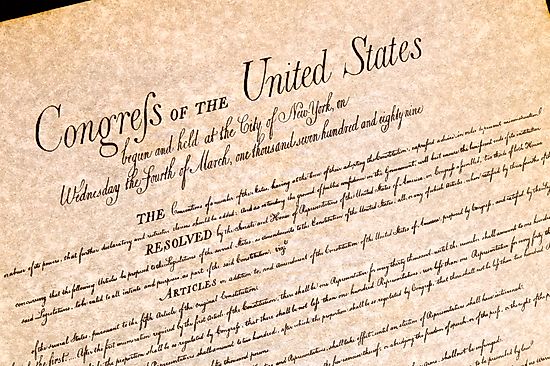 Congreſs OF THE United States
begun and held at the City of New York, on
Wednesday the Fourth of March, one thousand seven hundred and eighty nine
THE Conventions of a number of the States, having at the time of their adopting the Constitution, expressed a desire, in order to prevent misconstruction
or abuse of its powers, that further declaratory and restrictive clauses should be added: And as extending the ground of public confidence in the Government, will best ensure the beneficent ends of its institution
RESOLVED by the Senate and House of Representatives of the United States of America, in Congress assembled, two thirds of both Houses
concurring that the following Articles be proposed to the Legislatures of the several States, as amendments to the Constitution of the United States, all, or any of which Articles, when ratified by three fourths of the
said Legislatures, to be valid to all intents and purposes, as part of the said Constitution; vizt
ARTICLES in addition to, and amendment of the Constitution of the United States of America, proposed by Congress, and ratified by the
of the several States, pursuant to the fifth Article of the original Constitution.
the first.... After the first enumeration required by the first Article of the Constitution, there shall be one Representative for every thirty thousand, until the number shall amount to one hundred
the proportion shall be so regulated by Congress, that there shall be not less than one hundred Representatives, nor less than one Representative for every forty
Representatives shall amount to two hundred, after which the proportion shall be so regulated by Congress, that there shall not be less than two hundred
thousand persons.
and Representatives, shall take effect, until an election of Representatives shall have intervened.
the free exercise thereof; or abridging the freedom of speech, or of the press, or the right of the
Arms, shall not be infringed.